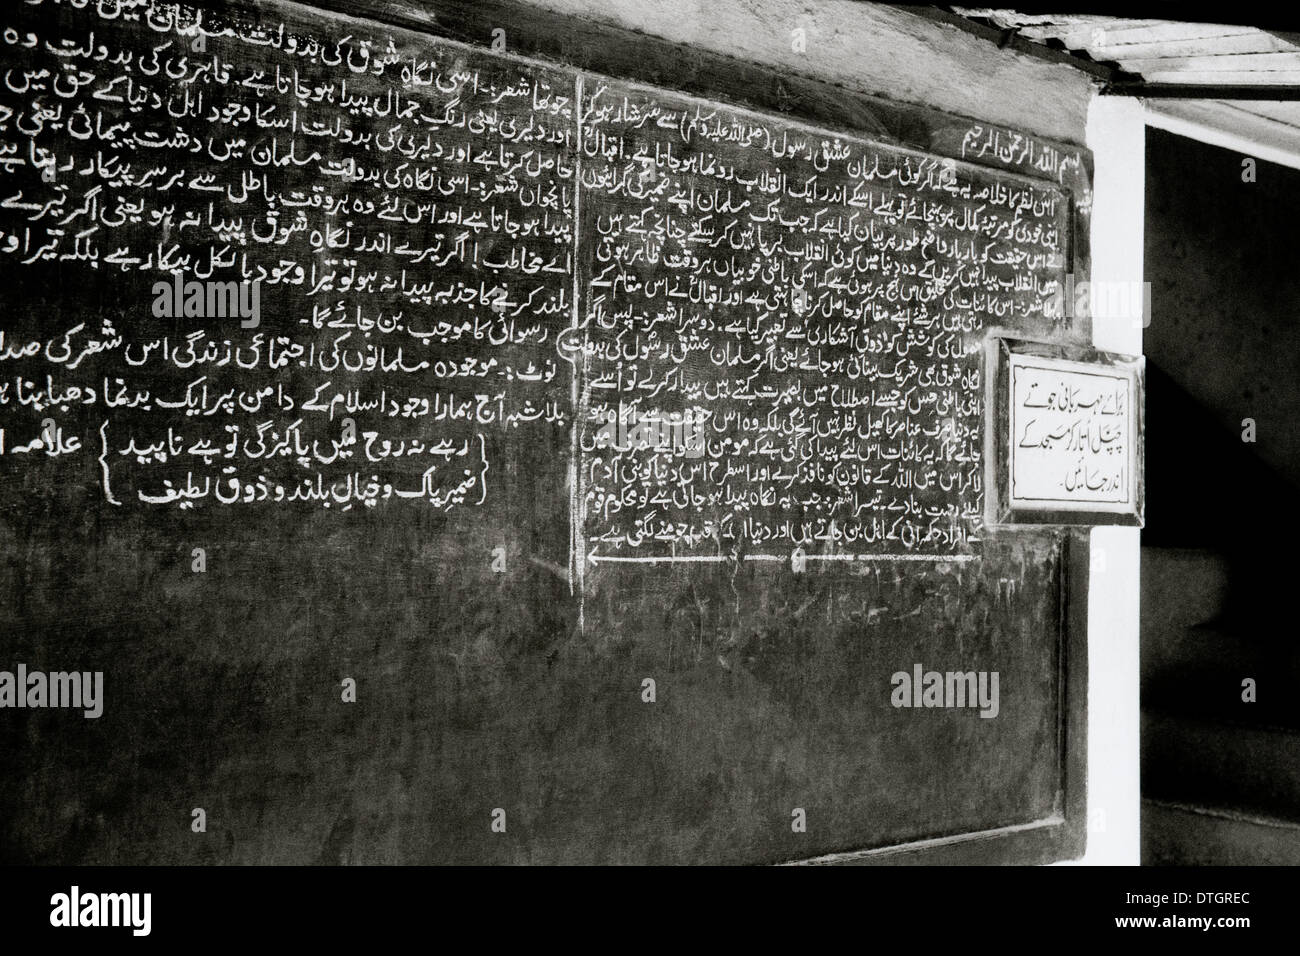 بسم اللہ الرحمٰن الرحیم
اس نظم کا خلاصہ یہ ہے کہ اگر کوئی مسلمان عشق رسول (صلی اللہ علیہ وسلم) سے سرشار ہو کر
اپنی خودی کو مرتبۂ کمال پر پہنچائے تو پہلے اسکے اندر ایک انقلاب رونما ہو جاتا ہے۔ اقبالؒ
نے اس حقیقت کو بار بار واضح طور پر بیان کیا ہے کہ جب تک مسلمان اپنے ضمیر کی گہرائیوں
میں انقلاب پیدا نہیں کریں گے وہ دنیا میں کوئی انقلاب برپا نہیں کر سکتے چنانچہ کہتے ہیں
پہلا شعر:۔ اس کائنات کی تخلیق اس نہج پر ہوئی ہے کہ اسکی باطنی خوبیاں ہر وقت ظاہر ہوتی
رہتی ہیں ہر شئے اپنے مقام کو حاصل کرنا چاہتی ہے اور اقبالؒ نے اس مقام کے
حصول کی کوشش کو ذوق آشکاری سے تعبیر کیا ہے۔ دوسرا شعر:۔ پس اگر
نگاہ شوق بھی شریک بینائی ہو جائے یعنی اگر مسلمان عشق رسول کی بدولت
اپنی باطنی حِس کو جسے اصطلاح میں بصیرت کہتے ہیں بیدار کرے تو اُسے
یہ دنیا صرف عناصر کا کھیل نظر نہیں آئے گی بلکہ وہ اس حقیقت سے آگاہ ہو
جائے گا کہ یہ کائنات اس لئے پیدا کی گئی ہے کہ مومن اسکو اپنے تصرف میں
لا کر اس میں اللہ کے قانون کو نافذ کرے اور اسطرح اس دنیا کو بنی آدم
کیلئے رحمت بنا دے۔ تیسرا شعر:۔ جب یہ نگاہ پیدا ہو جاتی ہے تو محکوم قوم
کے افراد حکمرانی کے اہل بن جاتے ہیں اور دنیا ان کے قدم چومنے لگتی ہے۔
چوتھا شعر:۔ اسی نگاہ شوق کی بدولت مسلمان میں
اور دلبری یعنی رنگِ جمال پیدا ہو جاتا ہے۔ قاہری کی بدولت وہ
حاصل کرتا ہے اور دلبری کی بدولت اسکا وجود اہل دنیا کے حق میں
پانچواں شعر:۔ اسی نگاہ کی بدولت مسلمان میں دشت پیمائی یعنی
پیدا ہو جاتا ہے اور اس لئے وہ ہر وقت باطل سے برسرِ پیکار رہتا ہے
اے مخاطب! اگر تیرے اندر نگاہ شوق پیدا نہ ہو یعنی اگر تیرے
بلند کرنے کا جذبہ پیدا نہ ہو تو تیرا وجود بالکل بیکار ہے بلکہ تیرا
رسوائی کا موجب بن جائے گا۔
نوٹ:۔ موجودہ مسلمانوں کی اجتماعی زندگی اس شعر کی
بلاشبہ آج ہمارا وجود اسلام کے دامن پر ایک بدنما دھبا بنا
رہے نہ روح میں پاکیزگی تو ہے ناپید
ضمیرِ پاک و خیالِ بلند و ذوقِ لطیف
علامہ
برائے مہربانی جوتے
چپل اُتار کر مسجد کے
اندر جائیں۔
alamy
DTGREC
www.alamy.com